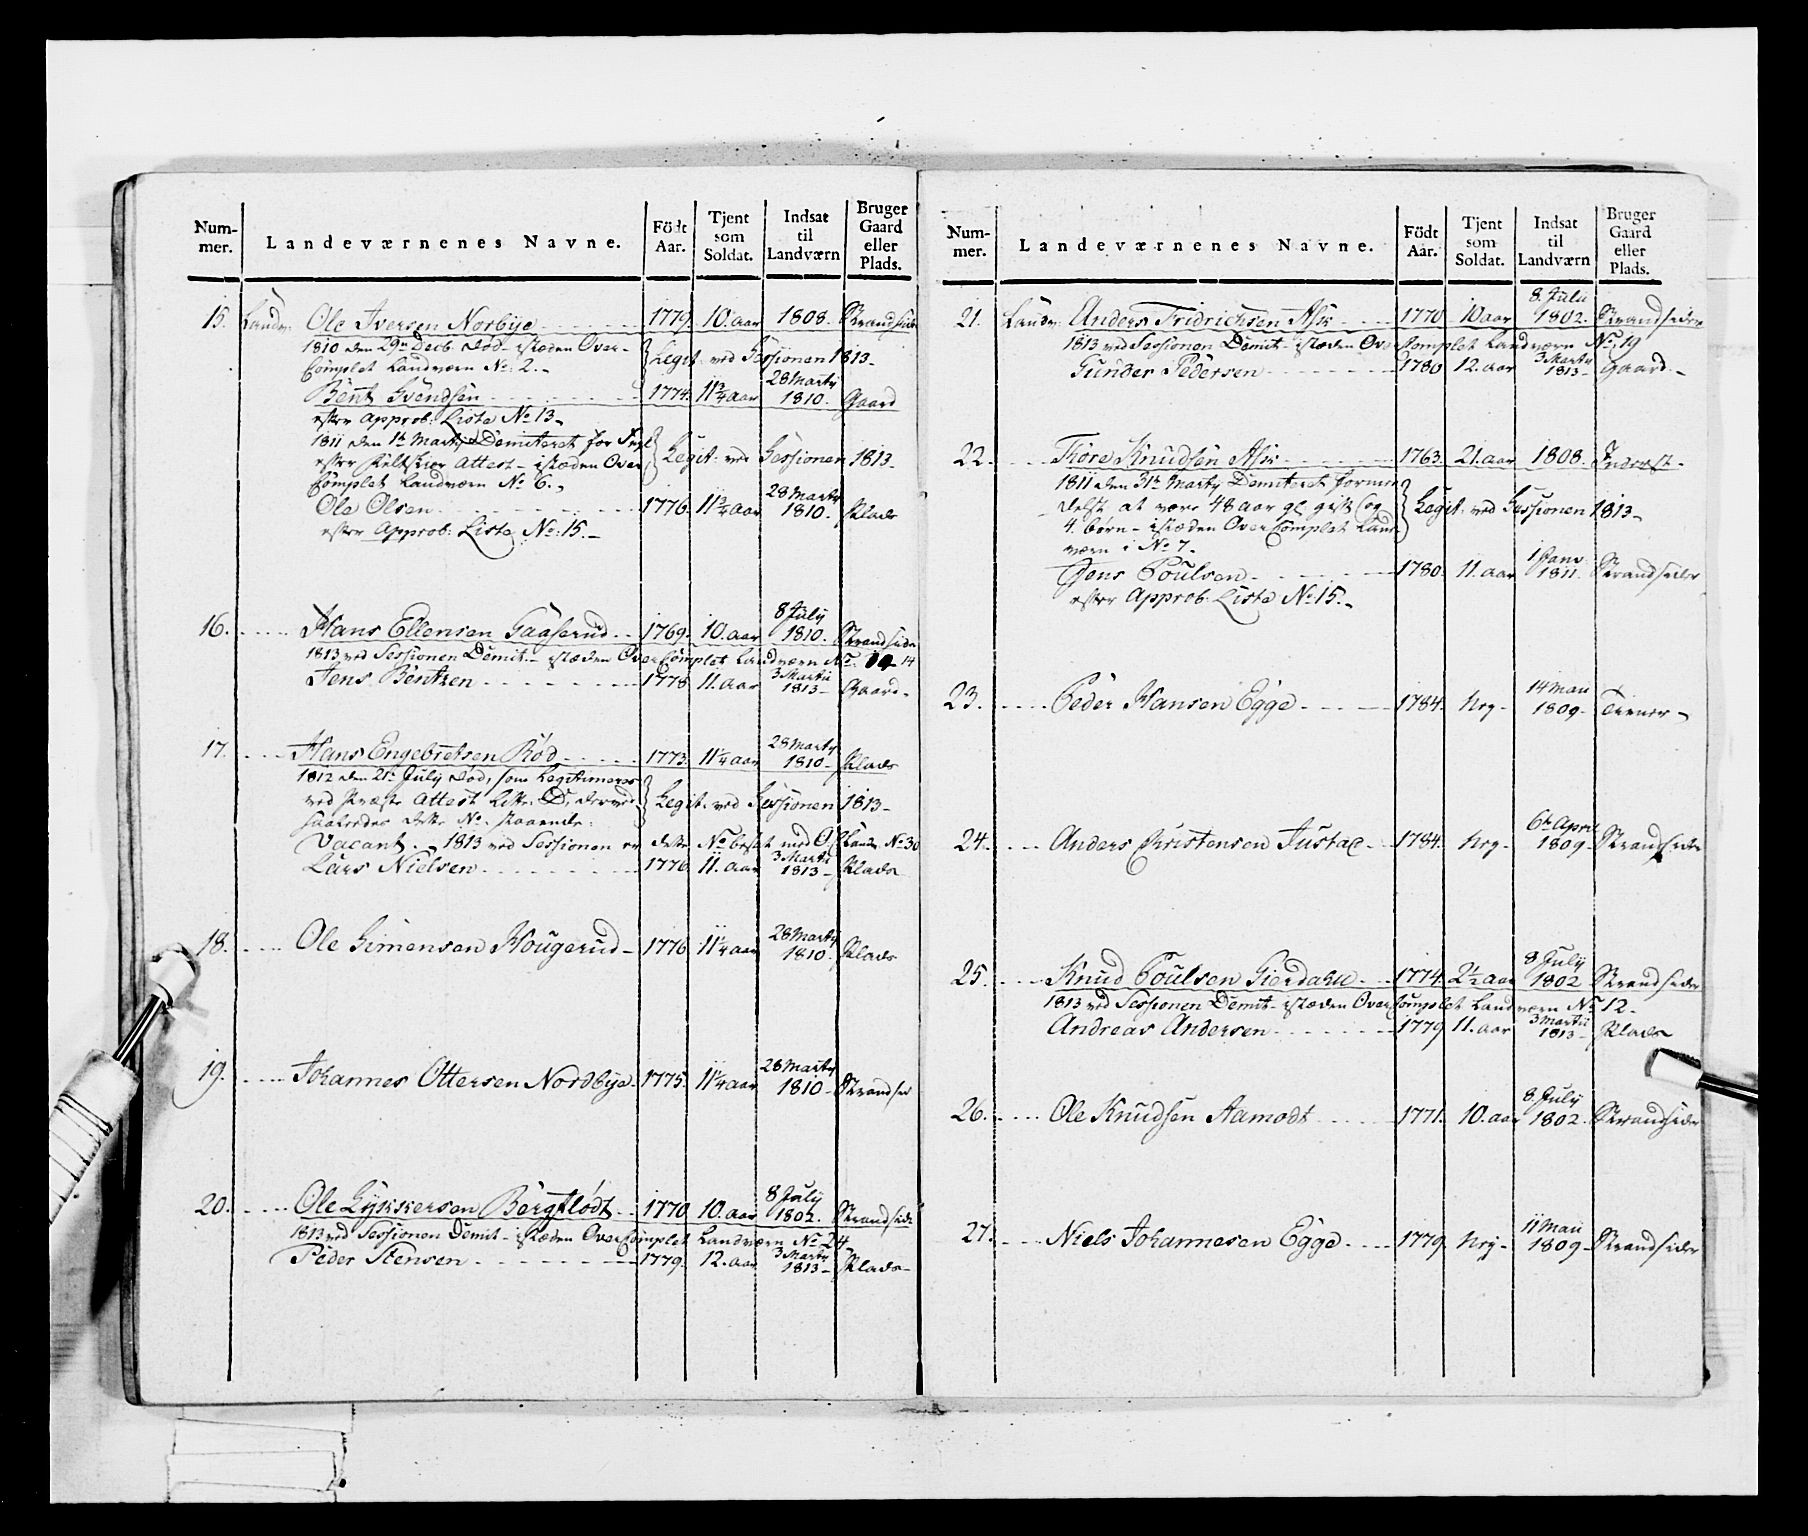 Num-mer. Landeværnenes Navne. Födt Aar. Tjent som Soldat. Indsat til Landværn Bruger Gaard eller Plads.
15. Landv: Ole Iversen Norbÿe 1779. 10. aar 1808. Strandsider
1810 den 29de Decb. død - istæden Over-
Complet Landværn No: 2.- Legit. ved Sessionen 1813.-
Bent Svendsen 1774. 11 3/4 aar 28 Martÿ 1810. Gaard
efter Approb: Liste No 13.
1811 den 1te Martÿ Demiteret for
efter Attest - istæden Over Legit. ved Sessionen 1813.-
Complet Landværn No 6.
Ole Olsen 1776. 11 3/4 aar 28 Martÿ 1810. Plads
efter Approb: Liste No: 15.-
16. Hans Ellensen Gaaserud 1769. 10. aar 8 Julÿ 1810. Strandsider
1813 ved Sessionen Demit.- istæden Over Complet Landværn No. 14
Jens Bentzen 1778 11. aar 3 Martii 1813- Gaard-
17. Hans Engebretsen Röd 1773. 11 1/4 aar 28 Martÿ 1810- Plads
1812 den 21de Julÿ død, som Legitimeres
ved Præste Attest Litr. D, derved Legit. ved Sessionen 1813-
saaledes dette No. staaende
Vacant. - 1813 ved Sessionen er dette No besat med O.C. Landv. No 30
Lars Nielsen 1776 11. aar 3 Martii 1813- Plads
18. Ole Simensen Hougerud- 1776 11 1/4 aar 28 Martÿ 1810. Plads
19. Johannes Ottersen Nordbÿe- 1775. 11 1/4 aar 28 Martÿ 1810- Strandser
20. Ole Lÿkkersen Bergflödt 1770 10. aar 8 Julÿ 1802. Strandside
1813 ved Sessionen Demit - istæden Over Complet Landværn No 24
Peder Stensen 1779. 12. aar 3 Martÿ 1813- Plads-
Num-mer. Landeværnenes Navne. Födt Aar. Tjent som Soldat. Indsat til Landværn Bruger Gaard eller Plads.
21. Landv: Anders Fridrichsen Ask 1770 10 aar 8. Julii 1802. Strandsider
1813 ved Sessionen Demit - istæden Over Complet Landværn No. 19
Gunder Pedersen 1780 12. aar 3 Martÿ 1813- Gaard.-
22. Tore Knudsen Ask 1763. 21. aar 1808. Inderst-
1811 den 31te Martÿ Demiteret formedelst at være 48 aar gl. gift og Legit. ved Sessionen 1813-
4. børn - istæden Over Complet Land-
værn i No 7-
Jens Poulsen 1780. 11. aar 1 Janv 1811. Strandsider
efter Approb: Liste No 15.-
23. Peder Hansen Egge 1784. Nÿ- 14 Maii 1809- Tienner-
24. Anders Christensen Justac 1784. Nÿ- 6te April 1809- Strandsider
25. Knud Poulsen Gierdahl 1774. 2 1/2 aar 8 Julÿ 1802 Strandsider
1813 ved Sessionen Demit - istæden Over Complet Landværn No 12-
Andreas Andersen 1779 11. aar 3 Martii 1813- Plads
26. Ole Knudsen Aamodt 1771. 10. aar 8. Julÿ 1802. Strandsider
27. Niels Johannesen Egge 1779. Nÿ- 11 Maii 1809- Strandsider